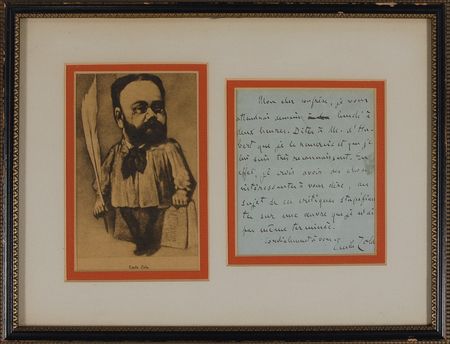 Emile Zola
Mon cher confrère, je vous
attendrai demain, lundi à
deux heures. Dites à M. d'Hu-
bert que je le remercie et que je
lui suis très reconnaissant. En
effet, je crois avoir des choses
intéressantes à vous dire, au
sujet de ces critiques stupéfian-
tes sur une œuvre que je n'ai
pas même terminée.
Cordialement à vous
Emile Zola